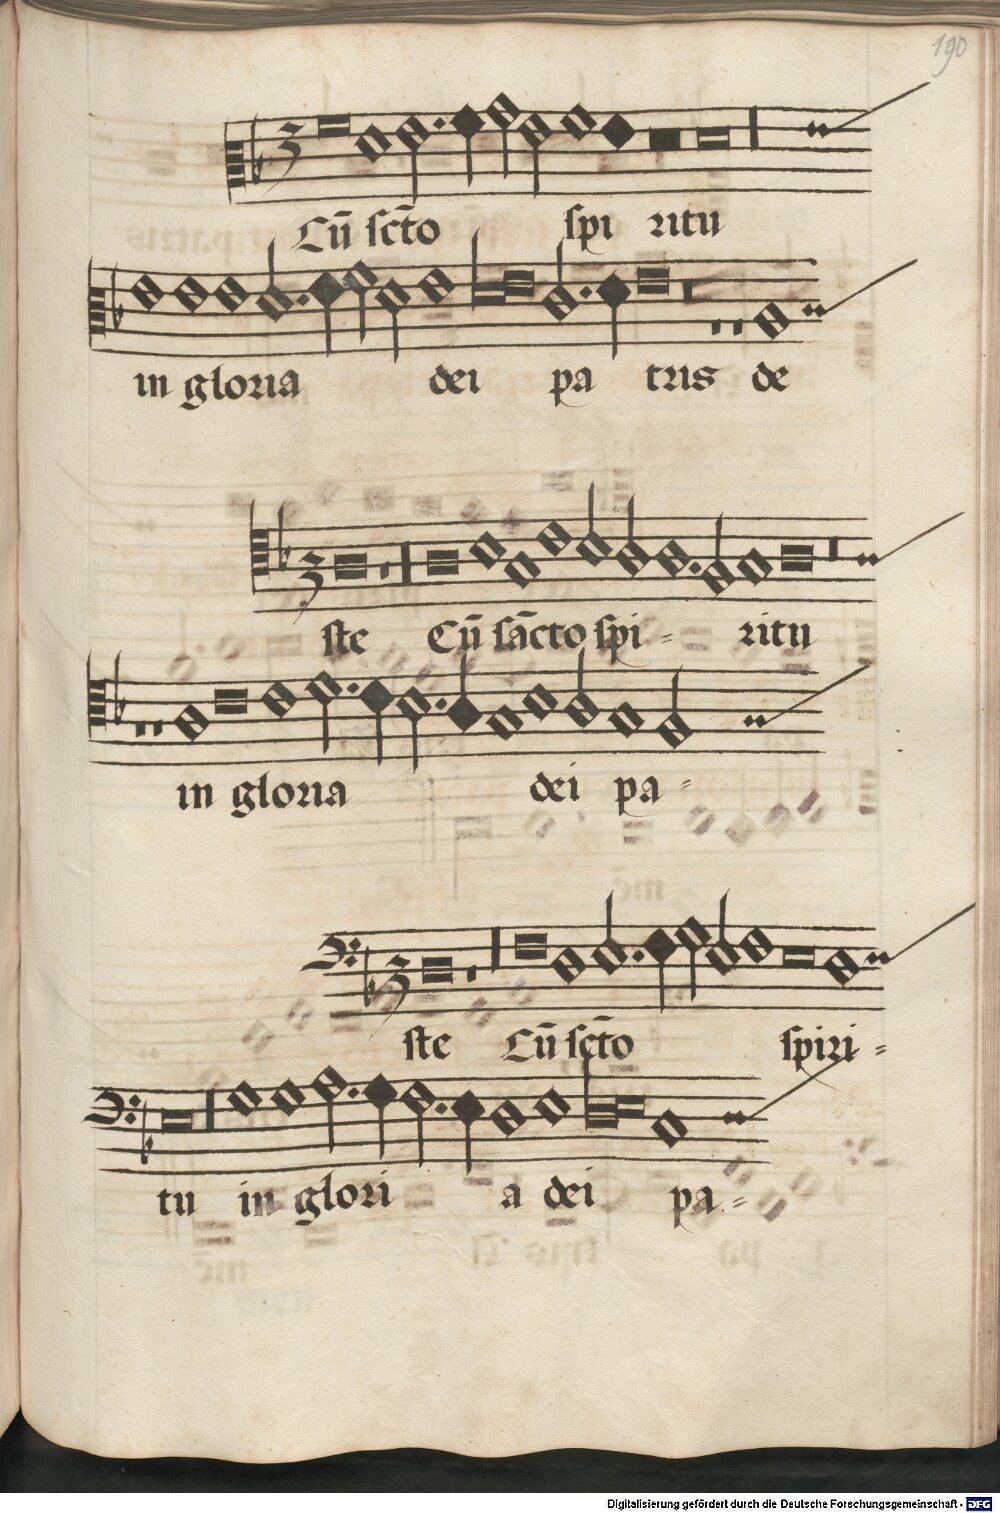 190
Cū sc̄to spi ritu
in gloria dei pa tris de
ste Cū sācto spi- ritu
in gloria dei pa-
ste Cū sc̄to spiri-
tu in glori a dei pa-
Digitalisierung gefördert durch die Deutsche Forschungsgemeinschaft - DFG